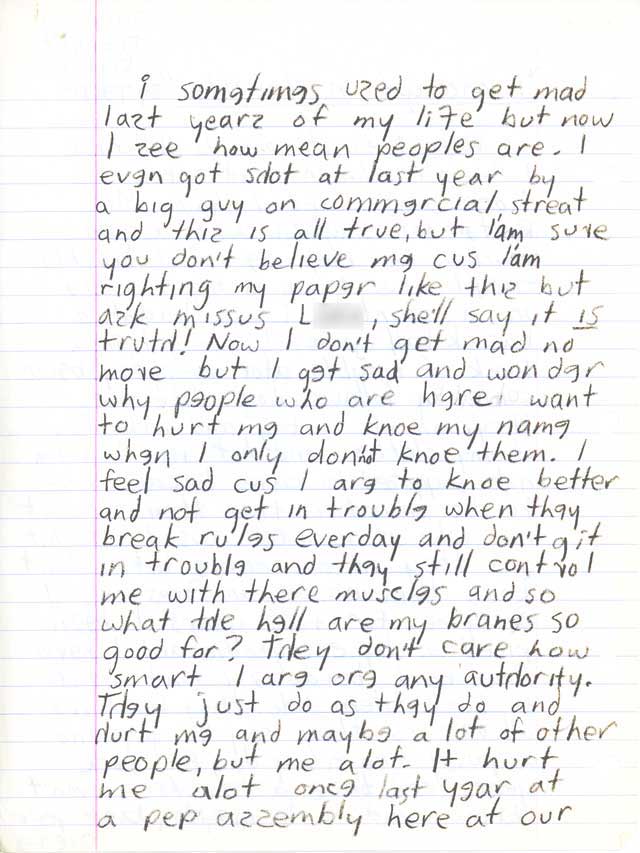 i somgtimgs uzed to get mad
lazt yearz of my life but now
I zee how mean peoples are. I
evgn got sdot at last year by
a big guy on commgrcial streat
and thiz is all true, but I'am sure
you don't believe mg cus I'am
righting my papgr like thiz but
azk missus L , she'll say it is
trutd! Now I don't get mad no
more but I ggt sad and wondgr
why pgople who are hgre want
to hurt mg and knoe my namg
whgn I only don't knoe them. I
feel sad cus I arg to knoe better
and not get in troublg when thgy
break rulgs everday and don't git
in troublg and thgy still control
me with there musclgs and so
what tde hgll are my branes so
good for? Tdey don't care how
smart I arg org any autdority.
Tdgy just do as thgy do and
durt mg and maybg a lot of other
people, but me alot. It hurt
me alot oncg last ygar at
a pep azzembly here at our